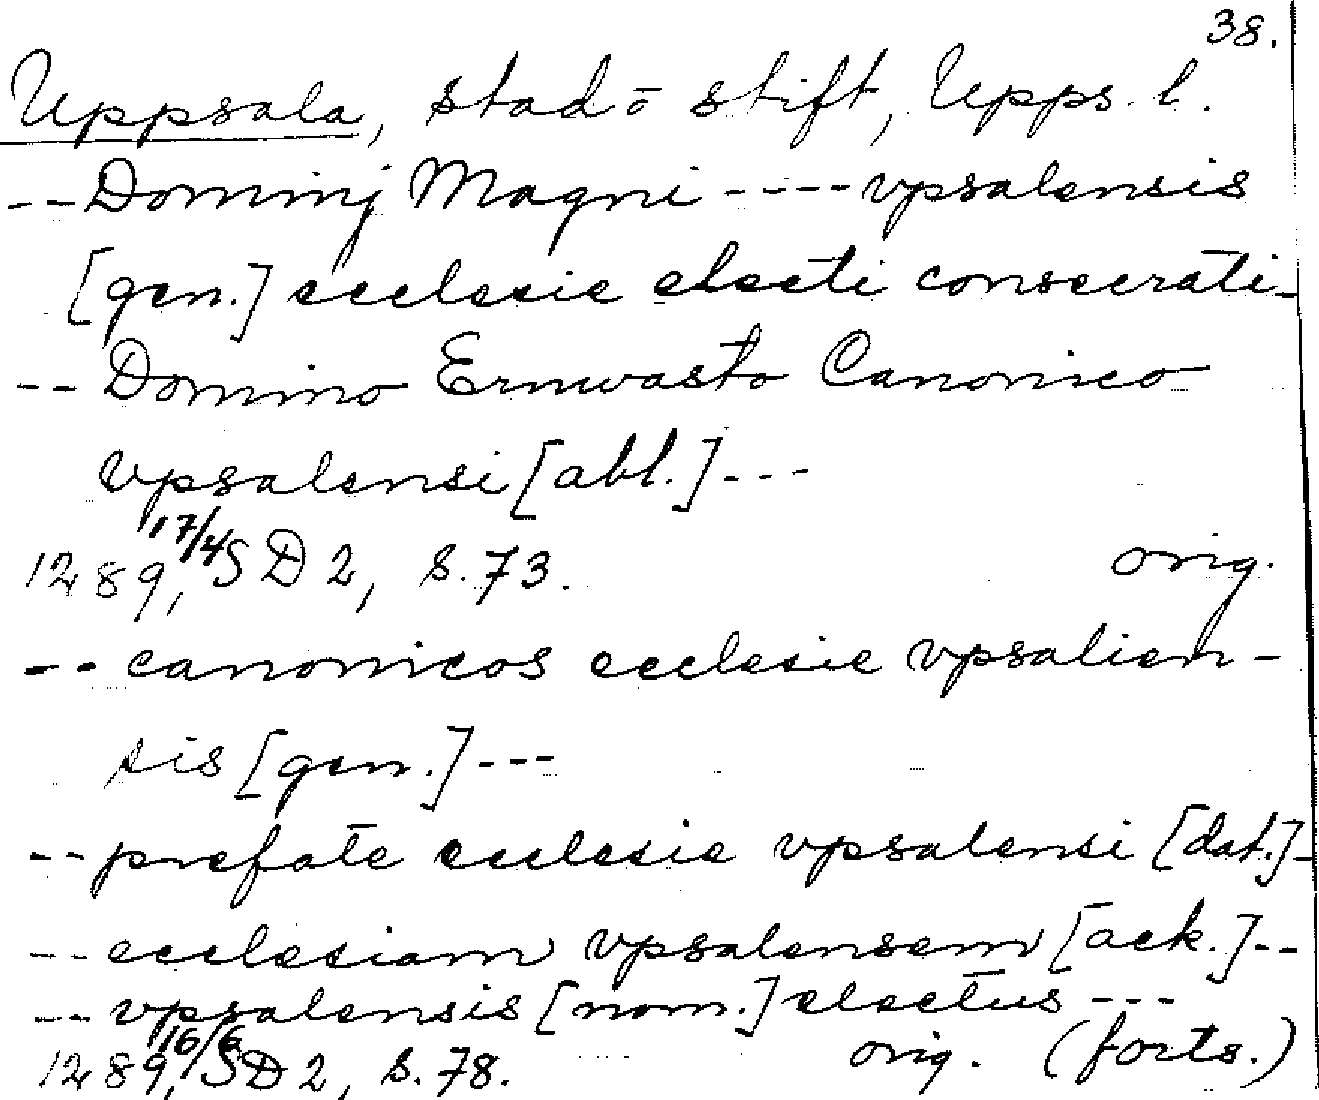 38.
Uppsala, stad o stift, Upps. l.
-- Dominj Magni ---- vpsalensis
[gen.] ecclesie electi consecrati-
-- Domino Ernwasto Canonico
vpsalensi [abl.] ---
1289, 17/4 SD 2, s. 73. orig.
-- canonicos ecclesie vpsalien-
sis [gen.] ---
-- prefate ecclesie vpsalensi [dat.]-
-- ecclesiam vpsalensem [ack.]--
-- vpsalensis [nom.] electus ---
1289, 16/6 SD 2, s. 78. orig. (forts.)